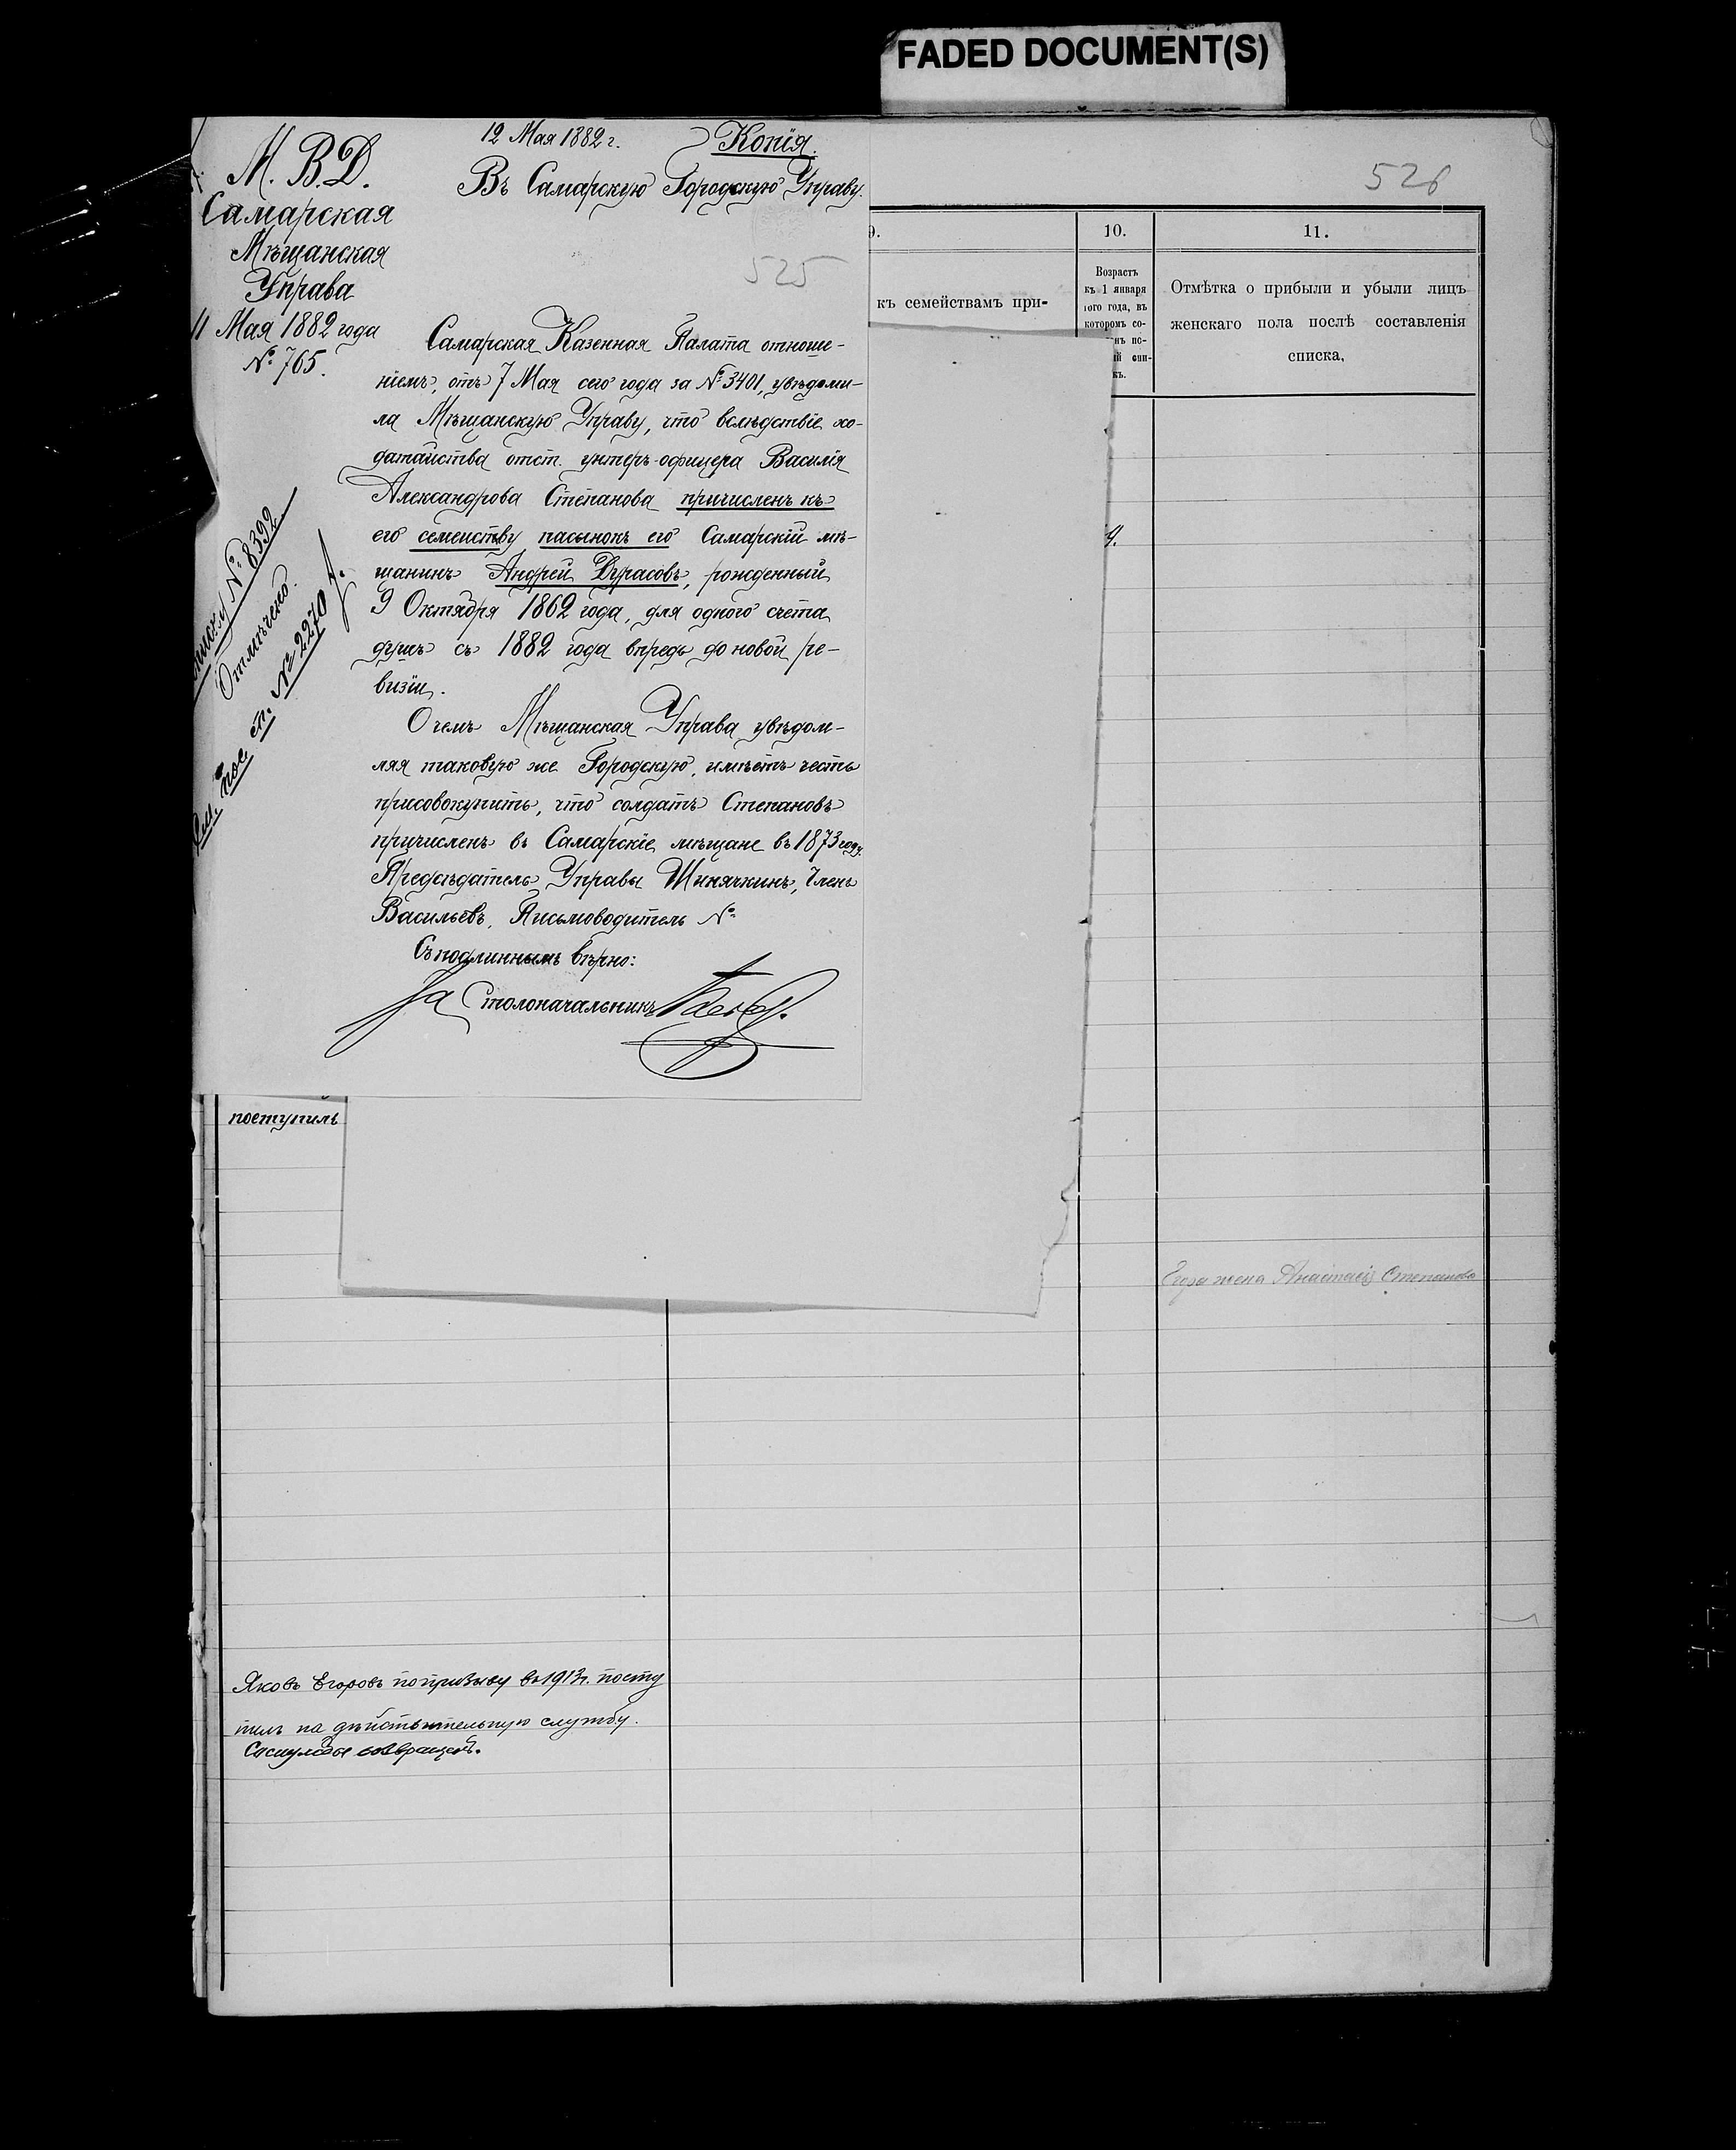 FADED DOCUMENT(S)
12 Мая 1882 г.
Копія.
М. В. Д.
Самарская
Мѣщанская
Управа
11 Мая 1882 года
№ 765.
Въ Самарскую Городскую Управу.
525
Самарская Казенная Палата отноше-
ніемъ, отъ 7 Мая сего года за № 3401, увѣдоми-
ла Мѣщанскую Управу, что вслѣдствіе хо-
датайства отст. унтеръ-офицера Василія
Александрова Степанова причисленъ къ
его семейству пасынокъ его Самарскій мѣ-
щанинъ Андрей Дурасовъ, рожденный
9 Октября 1862 года, для одного счета
душъ съ 1882 года впредь до новой ре-
визіи.
О чемъ Мѣщанская Управа увѣдом-
ляя таковую же Городскую, имѣетъ честь
присовокупить, что солдатъ Степановъ
причисленъ въ Самарскіе мѣщане въ 1873 году.
Предсѣдатель Управы Шинячкинъ, Членъ
Васильевъ, Письмоводитель №
Съ подлиннымъ вѣрно:
За Столоначальникъ
№ 8399
Отмѣчено.
См. пос. сп. № 2270
526
9.
10.
11.
къ семействамъ при-
Возрастъ
къ 1 января
того года, въ
которомъ со-
Отмѣтка о прибыли и убыли лицъ
женскаго пола послѣ составленія
списка.
поступилъ
Егора жена Анастасія Степанова
Яковъ Егоровъ по призыву въ 1913 г. посту
пилъ на дѣйствительную службу.